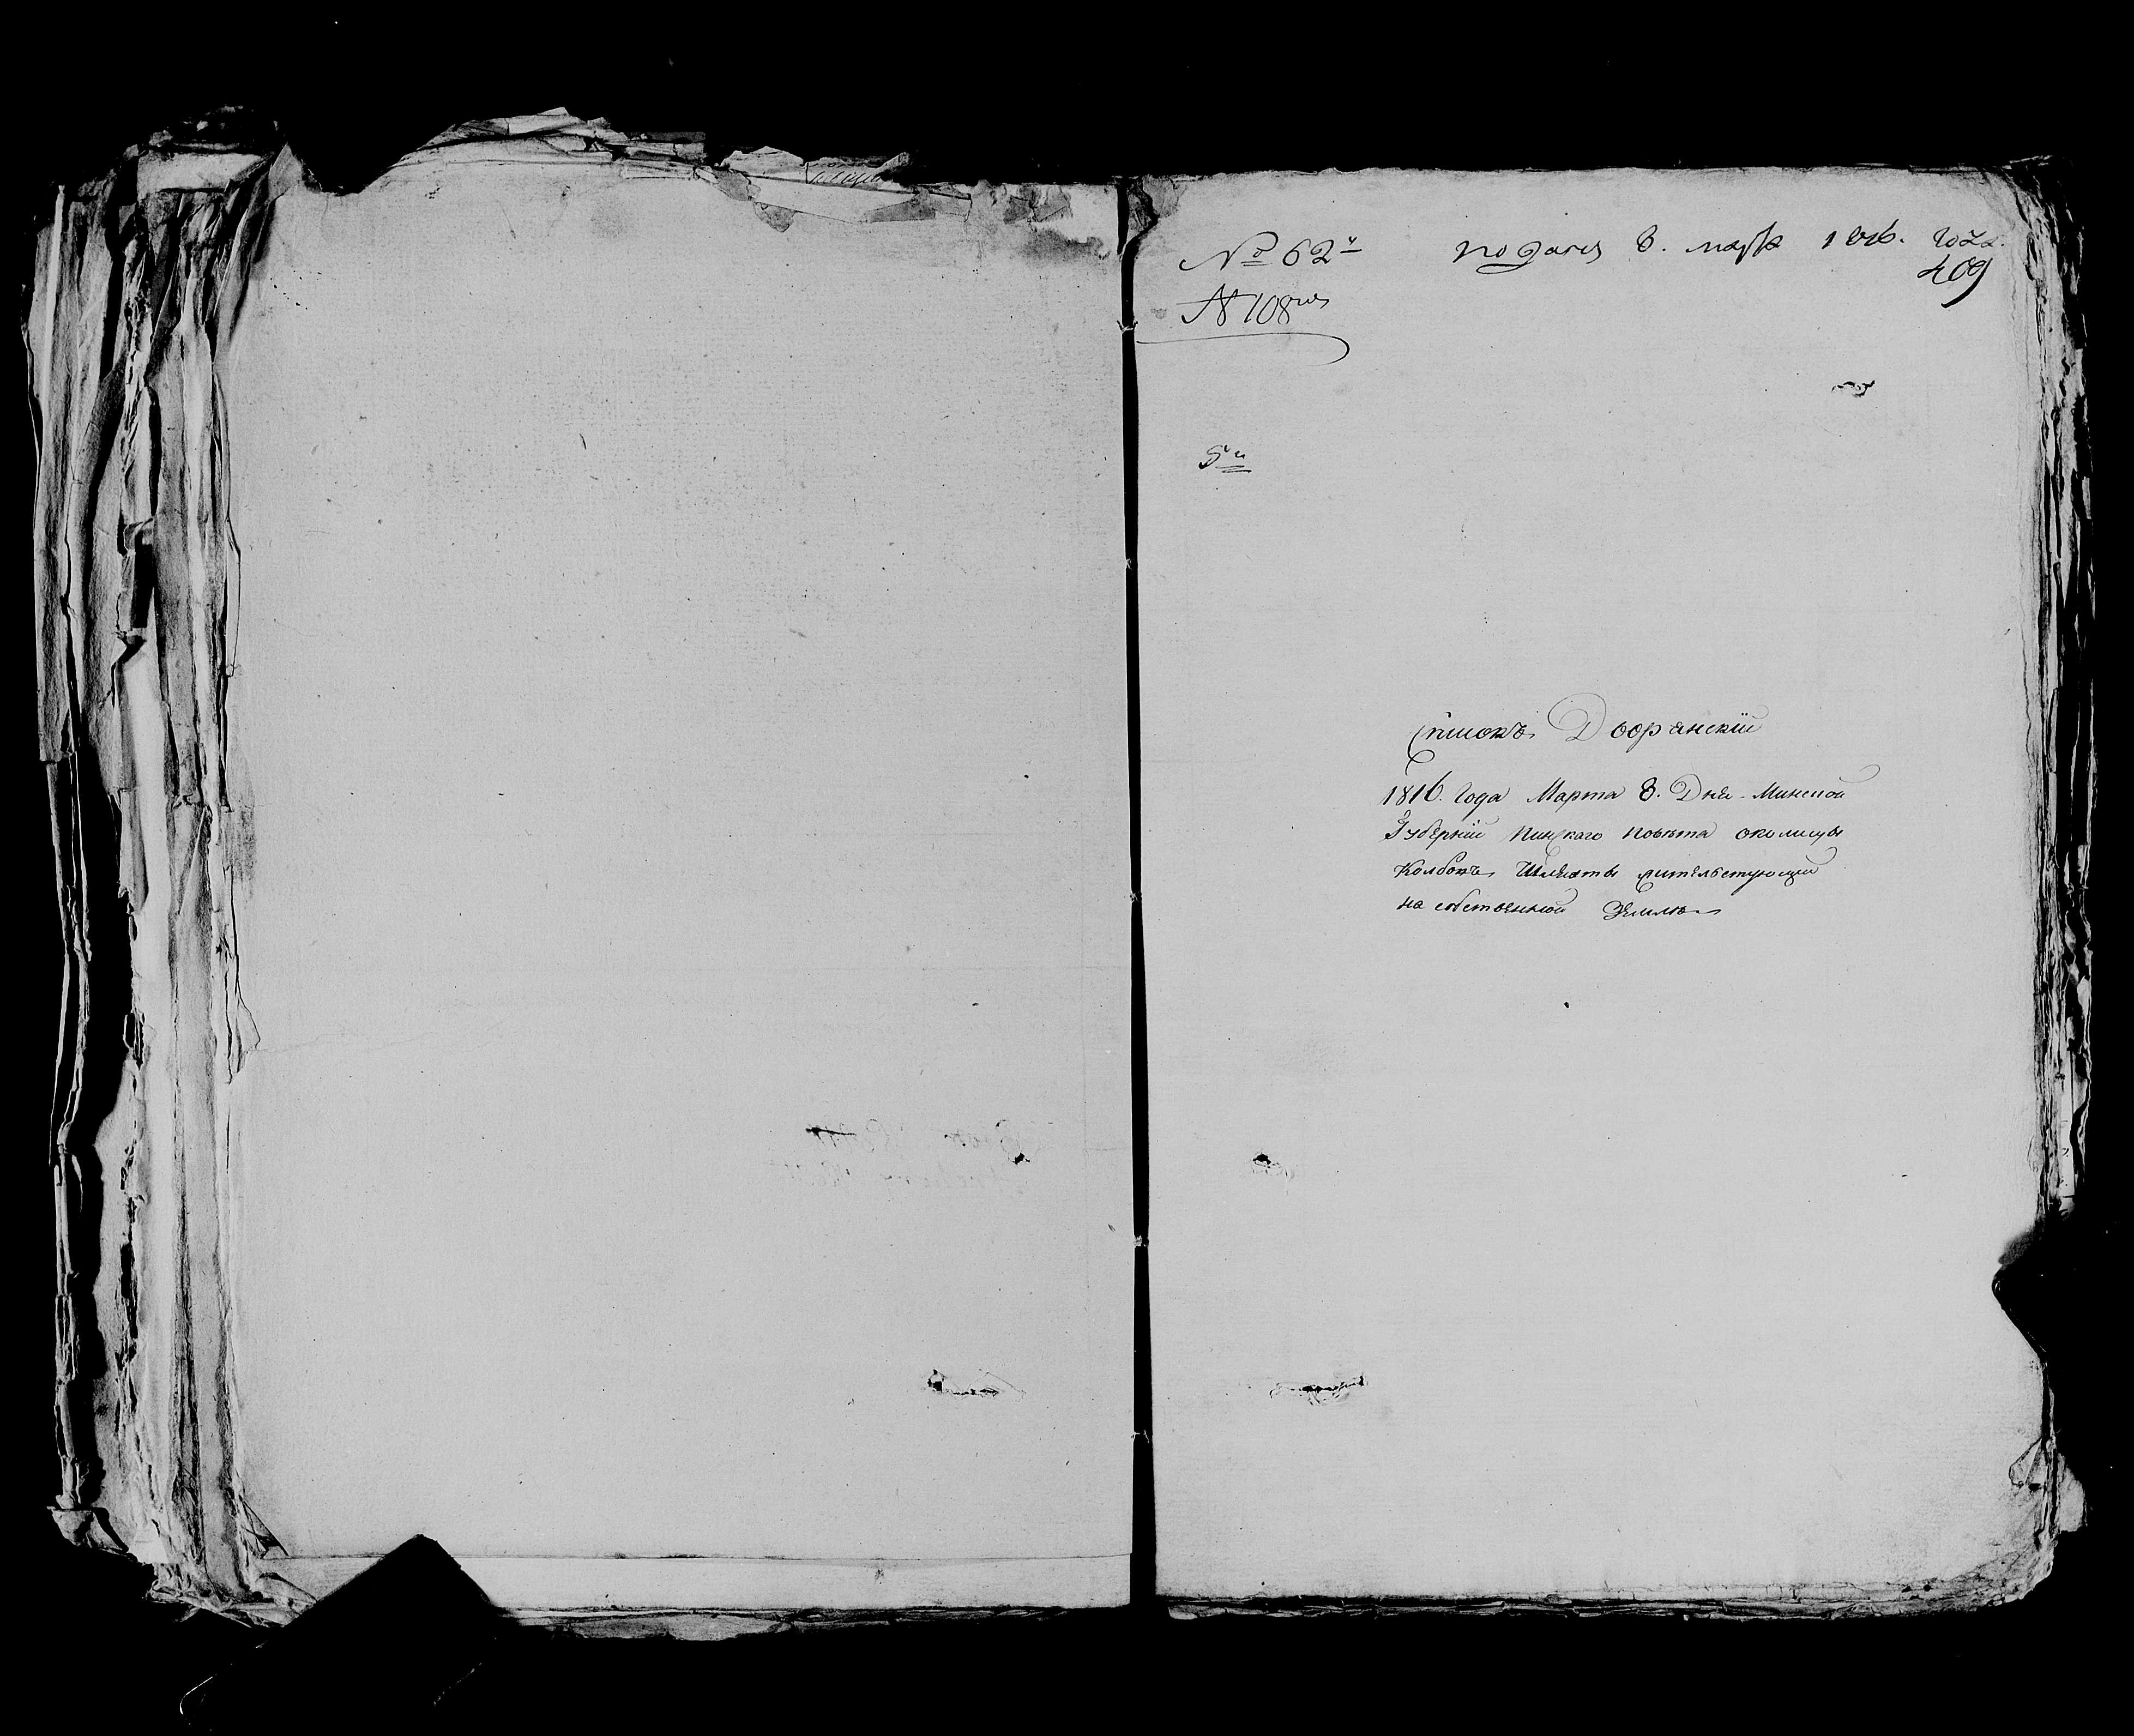 № 62й подано 8. марта 1816. года.
409
№ 108й
5й
Списокъ Дворянскій
1816. Года Марта 8. Дня Минской
Губерній Пинскаго Повѣта околицы
Колбокъ Шляхты жительствующій
на собственной Землѣ